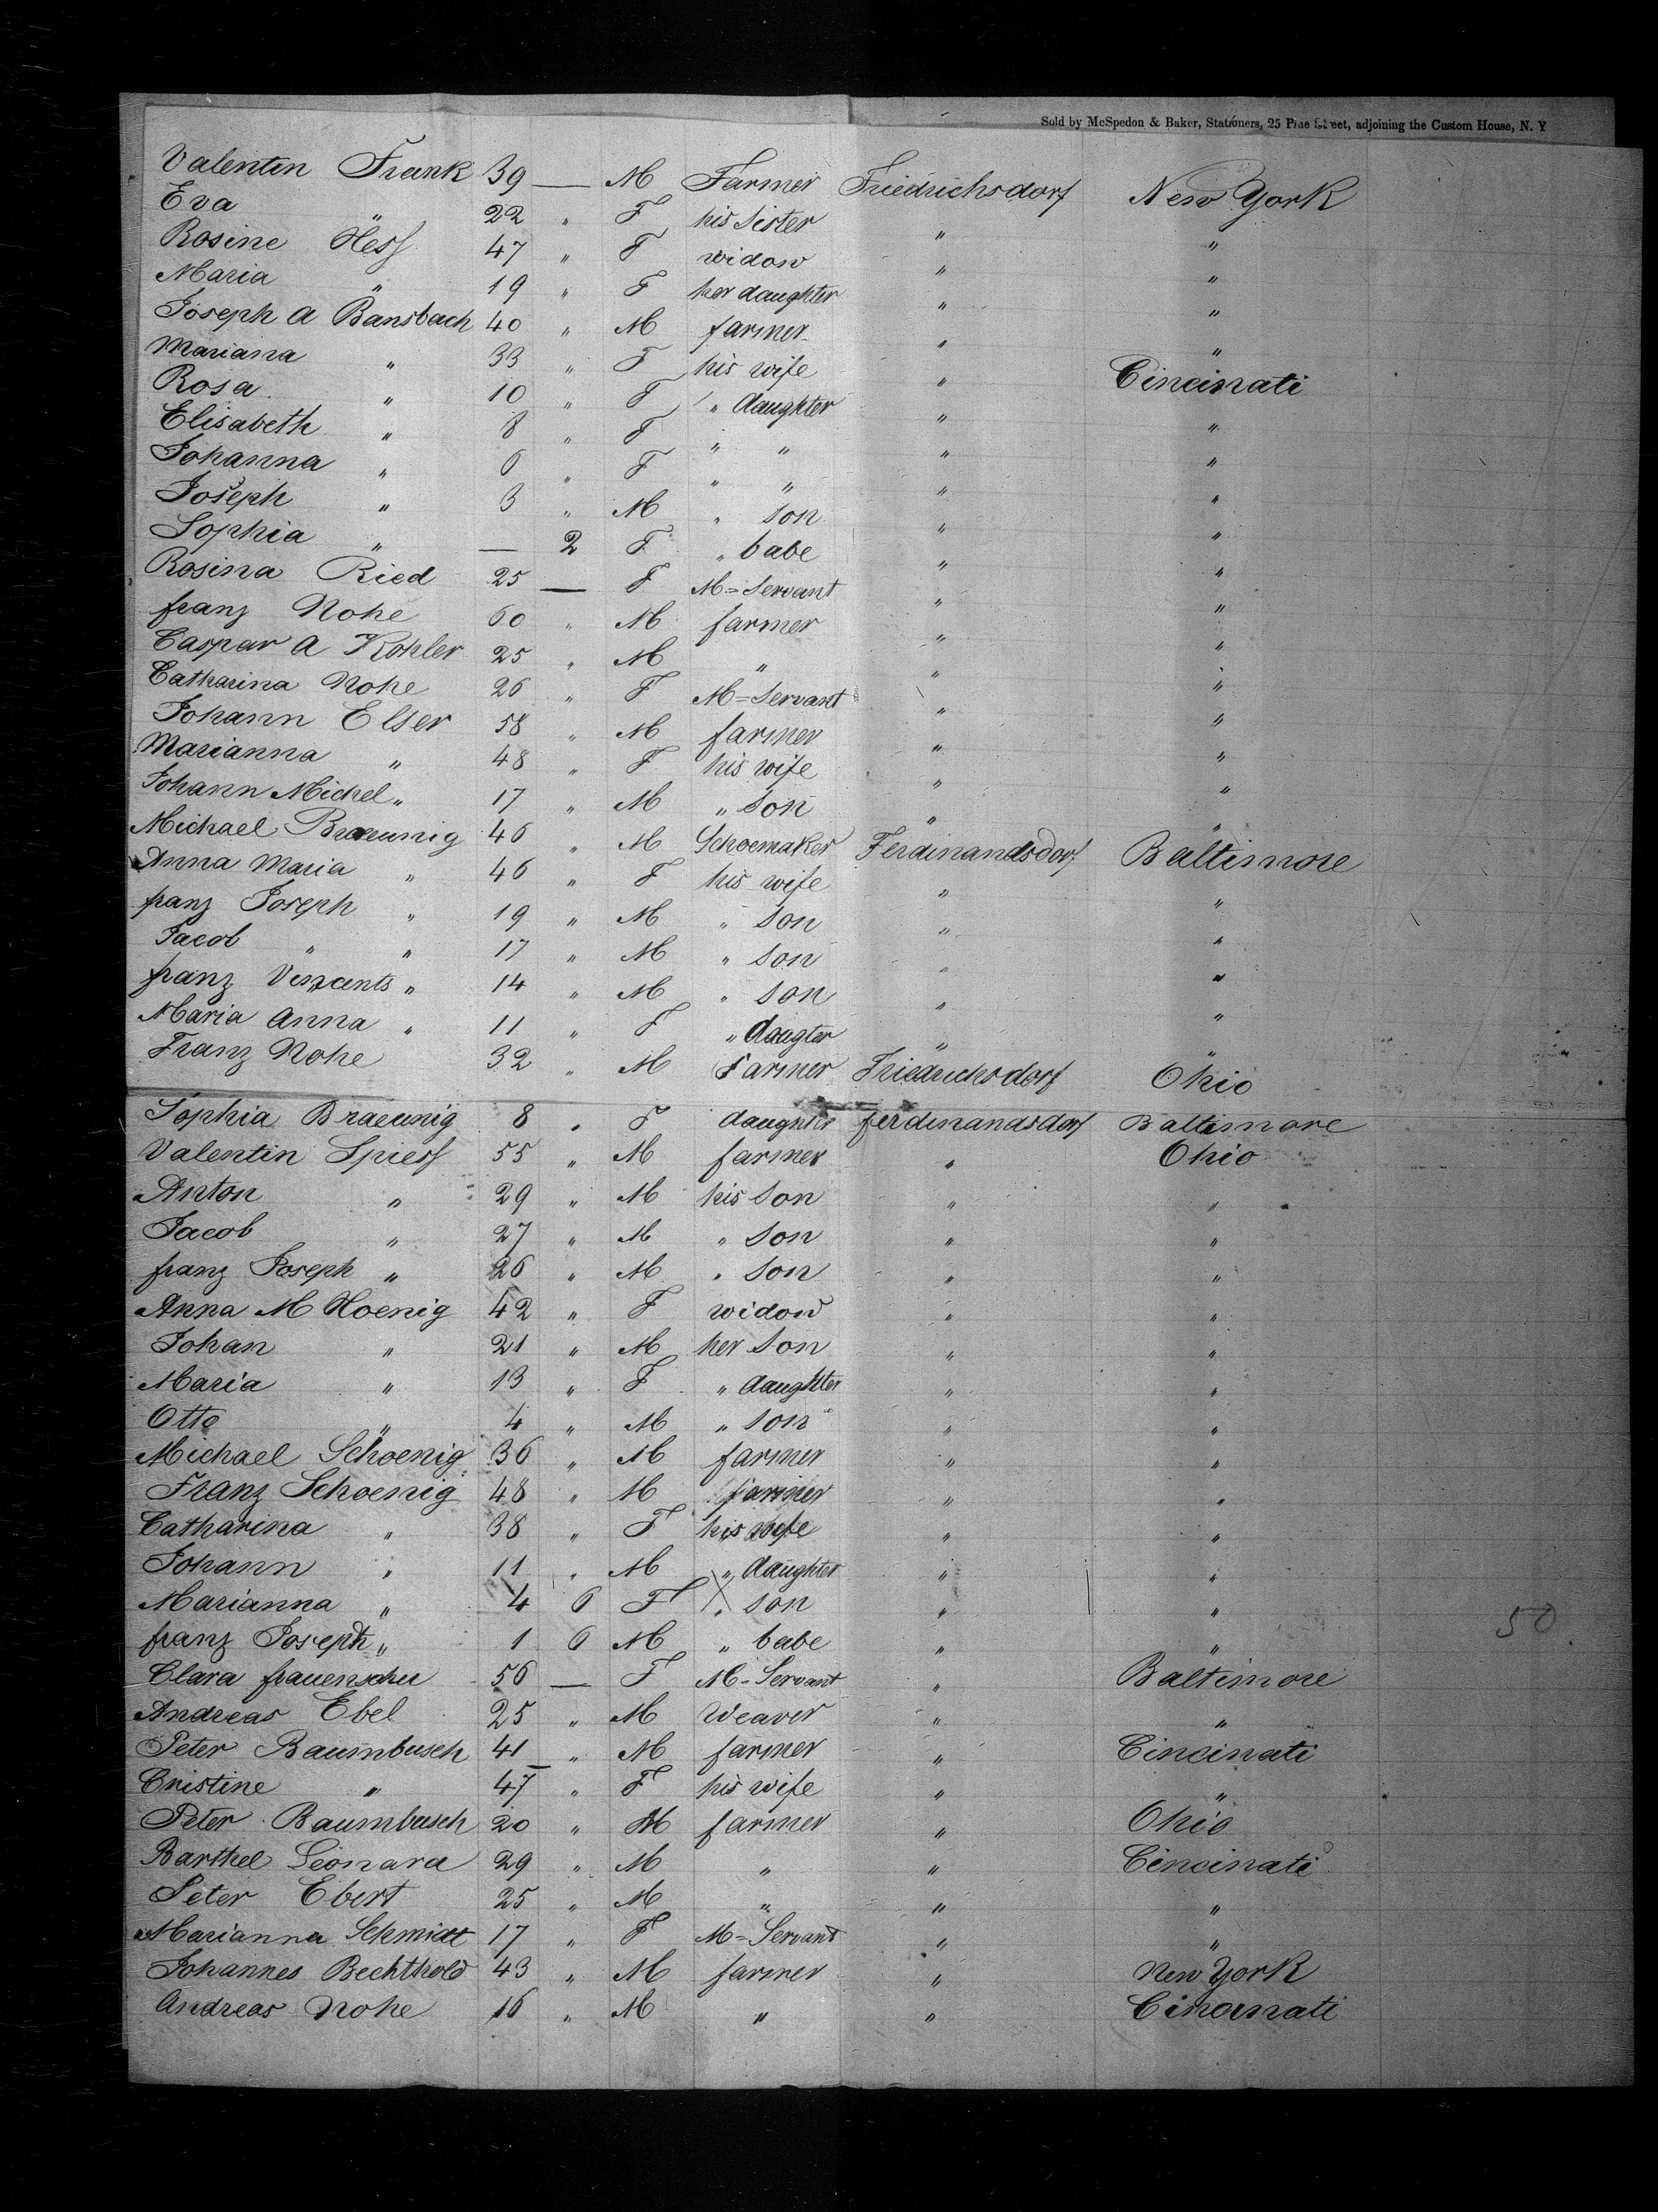 Sold by McSpedon & Baker, Stationers, 25 Pine Street, adjoining the Custom House, N. Y
Valentin Frank 39 — M Farmer Friedrichsdorf New York
Eva " 22 " F his Sister " "
Rosine Hess 47 " F widow " "
Maria " 19 " F her daughter " "
Joseph A Bansbach 40 " M farmer " "
Mariana " 33 " F his wife " Cincinati
Rosa " 10 " F " daughter " "
Elisabeth " 8 " F " " " "
Johanna " 6 " F " " " "
Joseph " 3 " M " Son " "
Sophia " — 2 F " babe " "
Rosina Ried 25 — F M=Servant " "
franz Nohe 60 " M farmer " "
Caspar A Kohler 25 " M " " "
Catharina Nohe 26 " F M=Servant " "
Johann Elser 58 " M farmer " "
Marianna " 48 " F his wife " "
Johann Michel " 17 " M " Son " "
Michael Braeunig 46 " M Schoemaker Ferdinandsdorf Baltimore
Anna Maria " 46 " F his wife " "
franz Joseph " 19 " M " Son " "
Jacob " " 17 " M " Son " "
franz Vinzents " 14 " M " Son " "
Maria Anna " 11 " F " daugter " "
Franz Nohe 32 " M Farmer Friedrichsdorf Ohio
Sophia Braeunig 8 " F daughter ferdinandsdorf Baltimore
Valentin Spiess 55 " M farmer " Ohio
Anton " 29 " M his Son " "
Jacob " 27 " M " Son " "
franz Joseph " 26 " M " Son " "
Anna M Hoenig 42 " F widow " "
Johan " 21 " M her Son " "
Maria " 13 " F " daughter " "
Otto " 4 " M " Son " "
Michael Schoenig 36 " M farmer " "
Franz Schoenig 48 " M farmer " "
Catharina " 38 " F his wife " "
Johann " 11 " M " daughter " "
Marianna " 4 6 F " Son " "
franz Joseph " 1 6 M " babe " "
Clara frauenschu 56 — F M=Servant " Baltimore
Andreas Ebel 25 " M Weaver " "
Peter Baumbusch 41 " M farmer " Cincinati
Cristine " 47 " F his wife " "
Peter Baumbusch 20 " M farmer " Ohio
Barthel Leonard 29 " M " " Cincinati
Peter Ebert 25 " M " " "
Marianna Schmidt 17 " F M=Servant " "
Johannes Bechthold 43 " M farmer " New York
Andreas Nohe 16 " M " " Cincinati
50